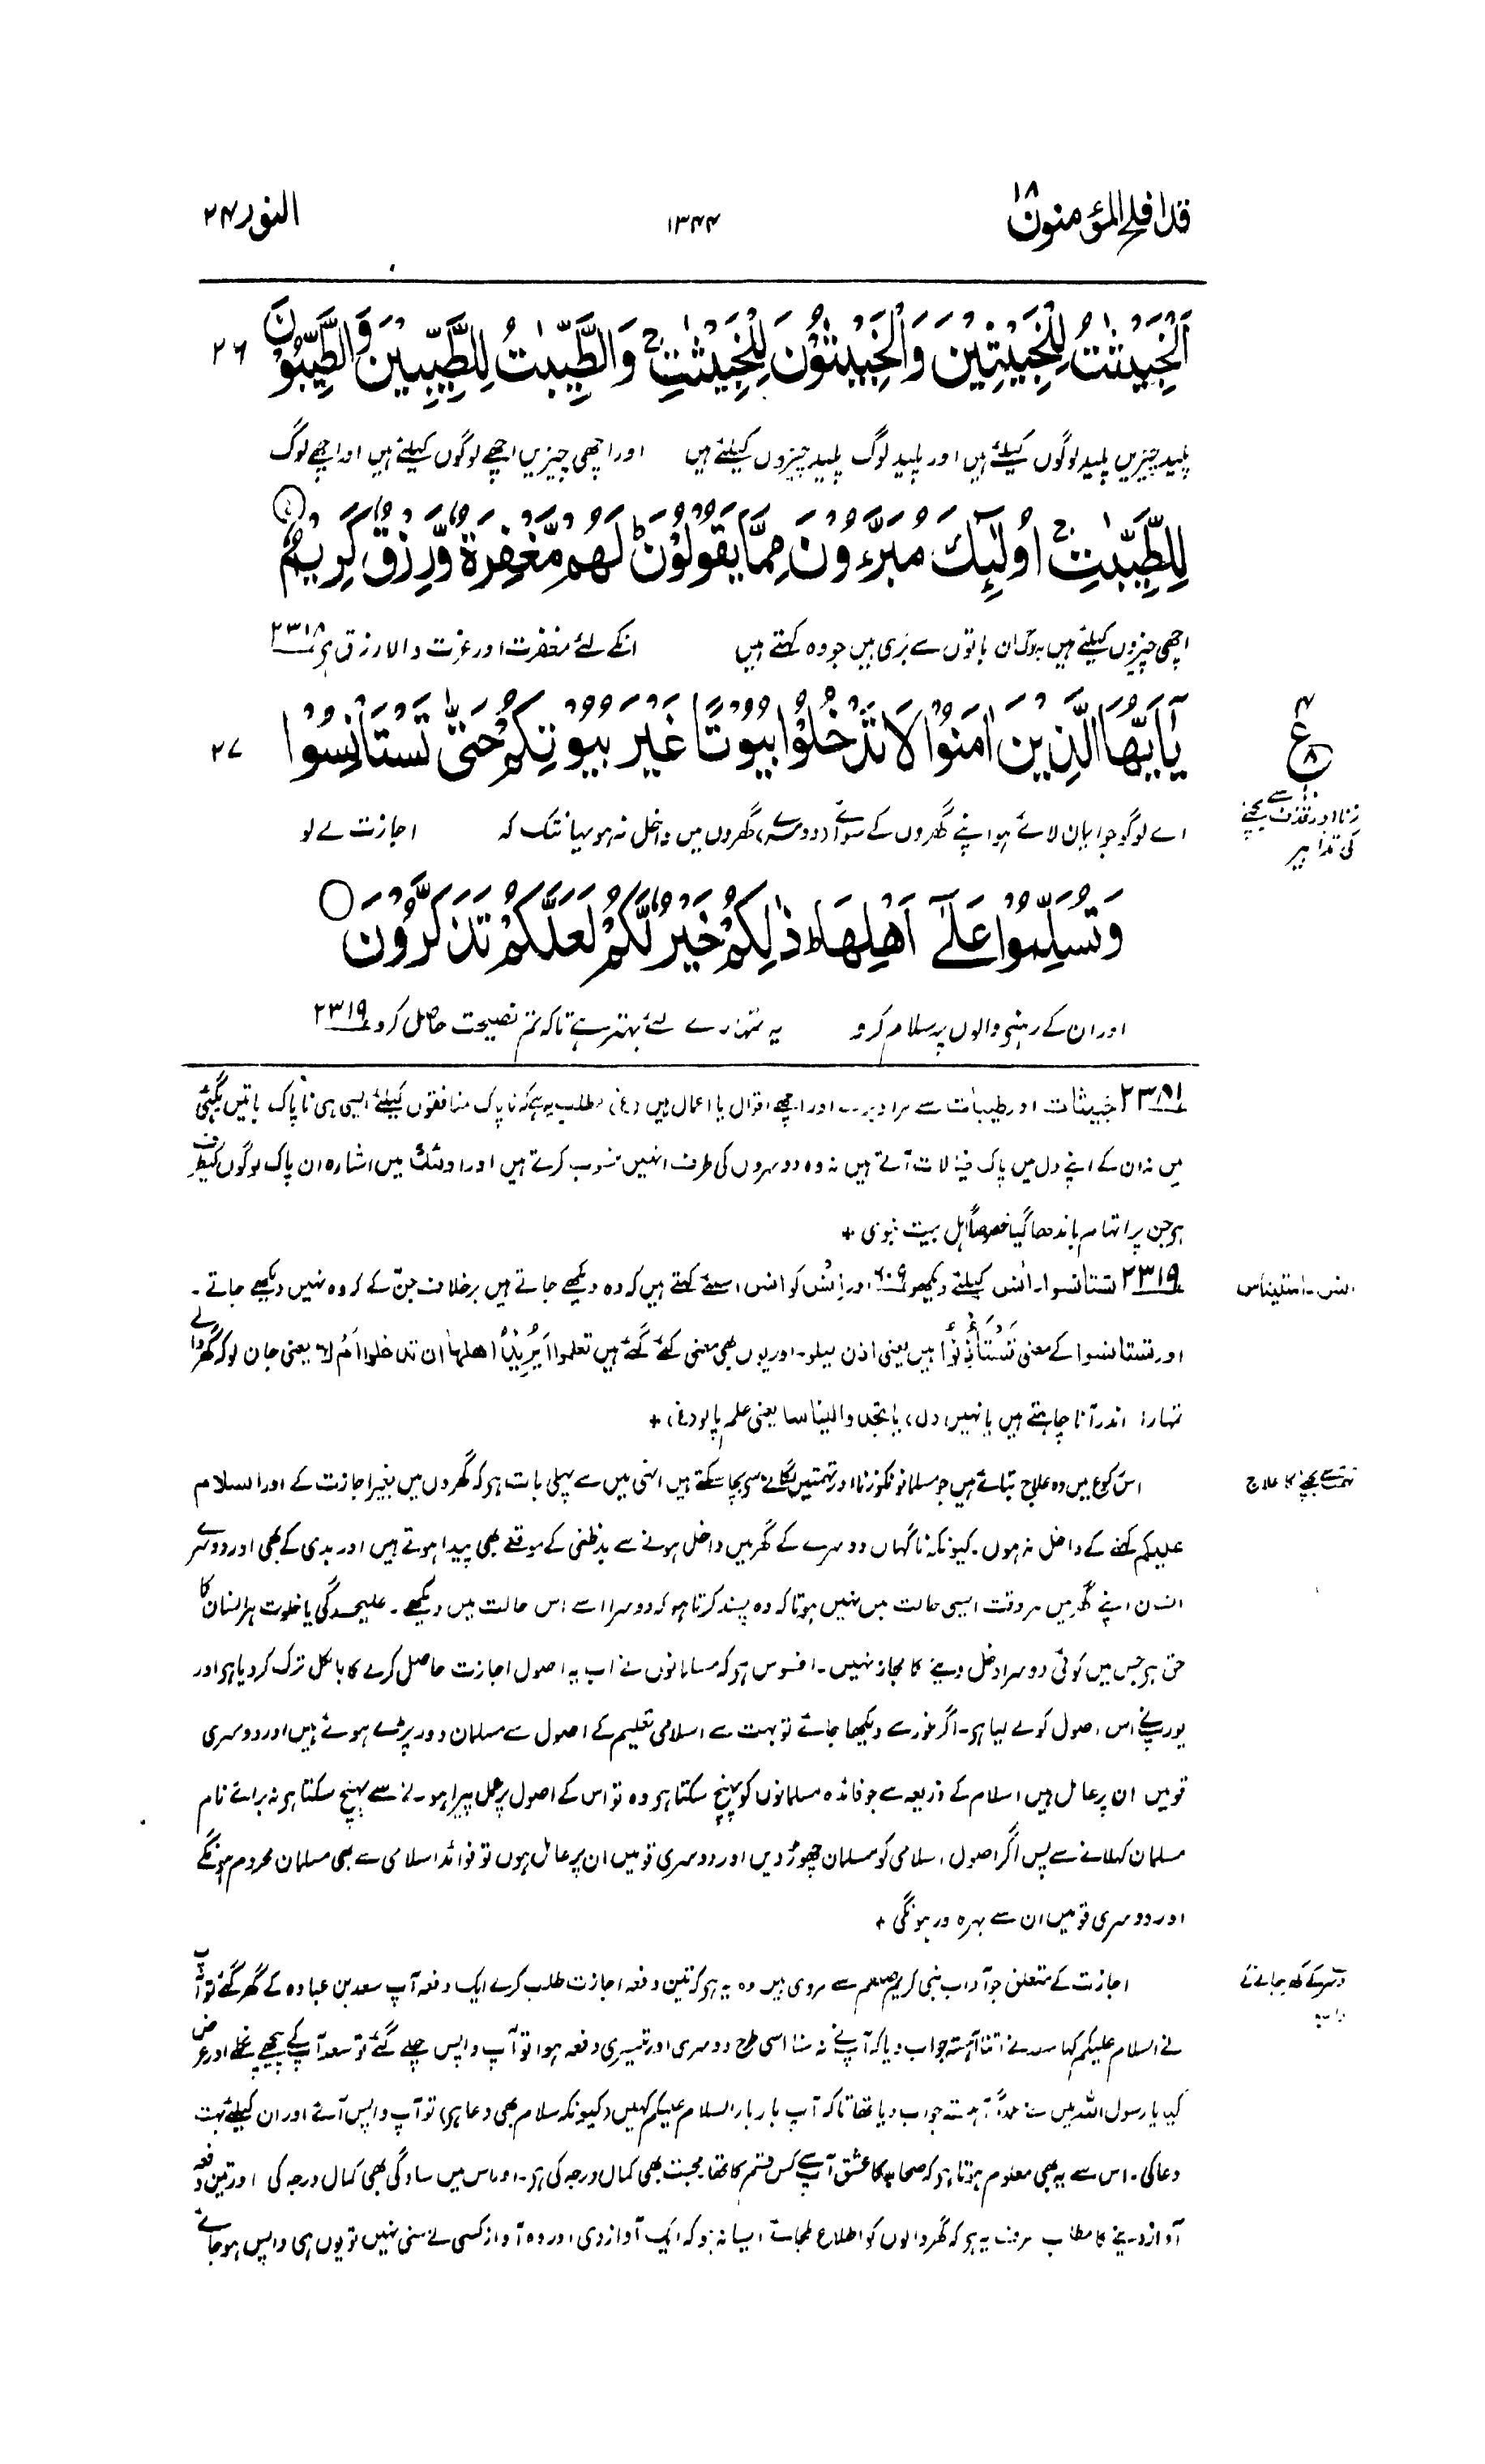 قد افلح المؤمنون ۱۸
۱۳۴۴
النور ۲۴
اَلْخَبِيْثٰتُ لِلْخَبِيْثِيْنَ وَالْخَبِيْثُوْنَ لِلْخَبِيْثٰتِ ۚ وَالطَّيِّبٰتُ لِلطَّيِّبِيْنَ وَالطَّيِّبُوْنَ
۲۶
پلید چیزیں پلید لوگوں کیلئے ہیں اور پلید لوگ پلید چیزوں کیلئے ہیں اور اچھی چیزیں اچھے لوگوں کیلئے ہیں اور اچھے لوگ
لِلطَّيِّبٰتِ ۚ اُولٰٓئِكَ مُبَرَّءُوْنَ مِمَّا يَقُوْلُوْنَ ؕ لَهُمْ مَّغْفِرَةٌ وَّرِزْقٌ كَرِيْمٌ
اچھی چیزوں کیلئے ہیں یہ لوگ ان باتوں سے بَری ہیں جو وہ کہتے ہیں انکے لئے مغفرت اور عزت والا رزق ہی ۲۳۱۸
يٰۤاَيُّهَا الَّذِيْنَ اٰمَنُوْا لَا تَدْخُلُوْا بُيُوْتًا غَيْرَ بُيُوْتِكُمْ حَتّٰى تَسْتَاْنِسُوْا
۲۷
۴
ع
۸
۱۰
زنا اور قذف سے بچنے
کی تدابیر
اے لوگو جو ایمان لائے ہو اپنے گھروں کے سوائے (دوسرے) گھروں میں داخل نہ ہو یہانتک کہ اجازت لے لو
وَتُسَلِّمُوْا عَلٰۤى اَهْلِهَا ؕ ذٰلِكُمْ خَيْرٌ لَّكُمْ لَعَلَّكُمْ تَذَكَّرُوْنَ
اور ان کے رہنے والوں پر سلام کرو یہ تمہارے لئے بہتر ہے تاکہ تم نصیحت حاصل کرو ۲۳۱۹
خبیثات اور طیبات سے مراد اور اچھے اقوال یا اعمال ہیں (غ) مطلب یہ ہے کہ ناپاک منافقوں کیلئے ایسی ہی ناپاک باتیں
ہیں نہ ان کے اپنے دل میں پاک خیالات آتے ہیں نہ وہ دوسروں کی طرف انہیں منسوب کرتے ہیں اور اولئك میں اشارہ ان پاک لوگوں کیطرف
ہر جن پر اتہام باندھا گیا خصوصاً اہل بیت نبوی +
۲۳۱۹ تستانسوا۔ انس کیلئے دیکھو ۶۰۹ اور اِنْس کو انس اسلئے کہتے ہیں کہ وہ دیکھے جاتے ہیں برخلاف جنّ کے کہ وہ نہیں دیکھے جاتے۔
انس۔ استیناس
اور تستانسوا کے معنی تَسْتَاْذِنُوْا ہیں یعنی اذن لیلو۔ اور یوں بھی معنی کئے گئے ہیں تعلموا ایرید اهلها ان تدخلوا ام لا یعنی جان لو کہ گھر والے
تمہارا اندر آنا چاہتے ہیں یا نہیں (ل) یا تجدوا ایناسا یعنی علم پالو (غ) +
اس رکوع میں وہ علاج بتائے ہیں جو مسلمانوں کو زنا اور تہمتیں لگانے سے بچا سکتے ہیں انہی میں سے پہلی بات ہو کہ گھروں میں بغیر اجازت کے اور السلام
تہمت سے بچنے کا علاج
علیکم کہنے کے داخل نہ ہوں۔ کیونکہ ناگہاں دوسرے کے گھر میں داخل ہونے سے بدظنی کے موقعے بھی پیدا ہوتے ہیں اور بدی کے بھی اور دوسرے
انسان اپنے گھر میں ہر وقت ایسی حالت میں نہیں ہوتا کہ وہ پسند کرتا ہو کہ دوسرا اسے اس حالت میں دیکھے۔ علیحدگی یا خلوت ہر انسان کا
حق ہر جس میں کوئی دوسرا دخل دینے کا مجاز نہیں۔ افسوس ہو کہ مسلمانوں نے اب یہ اصول اجازت حاصل کرنے کا بالکل ترک کر دیا ہو اور
یورپ نے اس اصول کو لے لیا ہو۔ اگر غور سے دیکھا جائے تو بہت سے اسلامی تعلیم کے اصول سے مسلمان دور پڑے ہوئے ہیں اور دوسری
قومیں ان پر عامل ہیں اسلام کے ذریعہ سے جو فائدہ مسلمانوں کو پہنچ سکتا ہو وہ تو اس کے اصول پر عمل پیرا ہونے سے پہنچ سکتا ہو نہ برائے نام
مسلمان کہلانے سے پس اگر اصول اسلامی کو مسلمان چھوڑ دیں اور دوسری قومیں ان پر عامل ہوں تو فوائد اسلامی سے بھی مسلمان محروم ہونگے
اور دوسری قومیں ان سے بہرہ ور ہونگی +
اجازت کے متعلق جو آداب نبی کریم صلعم سے مروی ہیں وہ یہ ہو کہ تین دفعہ اجازت طلب کرے ایک دفعہ آپ سعد بن عبادہ کے گھر گئے تو آپ
دوسرے کے گھر جانے کے
نے السلام علیکم کہا سعد نے اتنا آہستہ جواب دیا کہ آپ نے نہ سنا اسی طرح دوسری اور تیسری دفعہ ہوا تو آپ واپس چلے گئے تو سعد آپ کے پیچھے نکلے اور عرض
کیا یا رسول اللہ میں نے عمداً آہستہ جواب دیا تھا تاکہ آپ بار بار السلام علیکم کہیں (کیونکہ سلام بھی دعا ہی) تو آپ واپس آئے اور ان کیلئے بہت
دعا کی۔ اس سے یہ بھی معلوم ہوتا ہو کہ صحابہ کا عشق آپ سے کس قسم کا تھا محبت بھی کمال درجہ کی ہو۔ اور اس میں سادگی بھی کمال درجہ کی اور تین دفعہ
آواز دینے کا مطلب صرف یہ ہو کہ گھر والوں کو اطلاع ملجائے ایسا نہ ہو کہ ایک آواز دی اور وہ آواز کسی نے سنی نہیں تو یوں ہی واپس ہو جائے